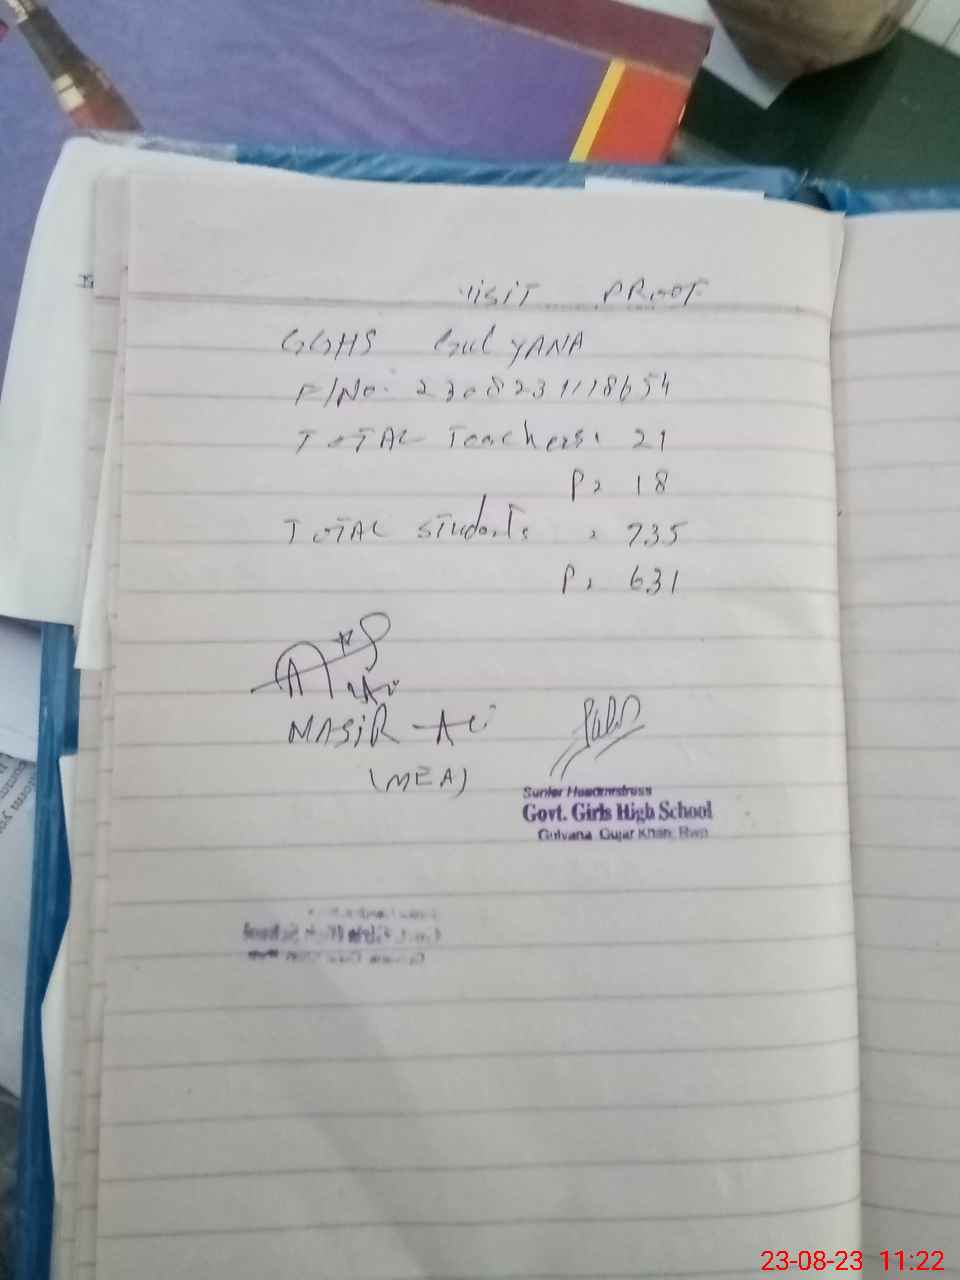 VISIT PROOF
GGHS GulYANA
F/No: 2308231118654
TOTAL Teachers: 21
P= 18
TOTAL Students = 735
P= 631
NASIR Ali
(MEA)
Senior Headmistress
Govt. Girls High School
Gulyana Gujar Khan, Rwp
23-08-23 11:22